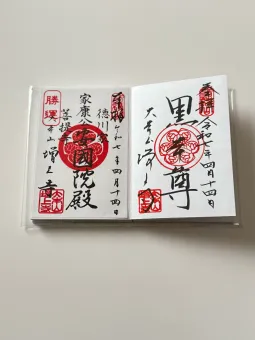 奉拝
令和七年四月十四日
黒本尊
大本山増上寺
令和七年四月十四日
徳川家
安國院殿
家康公
菩提寺
勝運
大本山
増上寺